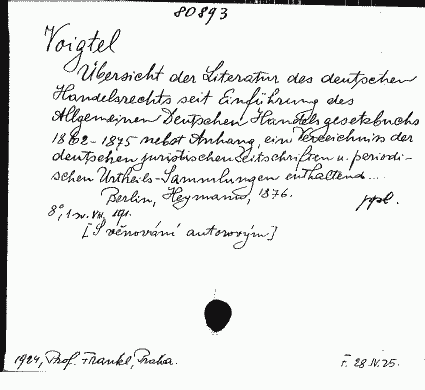 80893
Voigtel
Übersicht der Literatur des deutschen
Handelsrechts seit Einführung des
Allgemeinen Deutschen Handelsgesetzbuchs
1862-1875 nebst Anhang, ein Verzeichniss der
deutschen juristischen Zeitschriften u. periodi-
schen Urtheils-Sammlungen enthaltend...
Berlin, Heymann, 1876.
ppl.
8°, 1 sv. VII, 191.
[S věnování autorovým]
1924, Prof. Frankl, Praha.
F. 28 IV. 25.